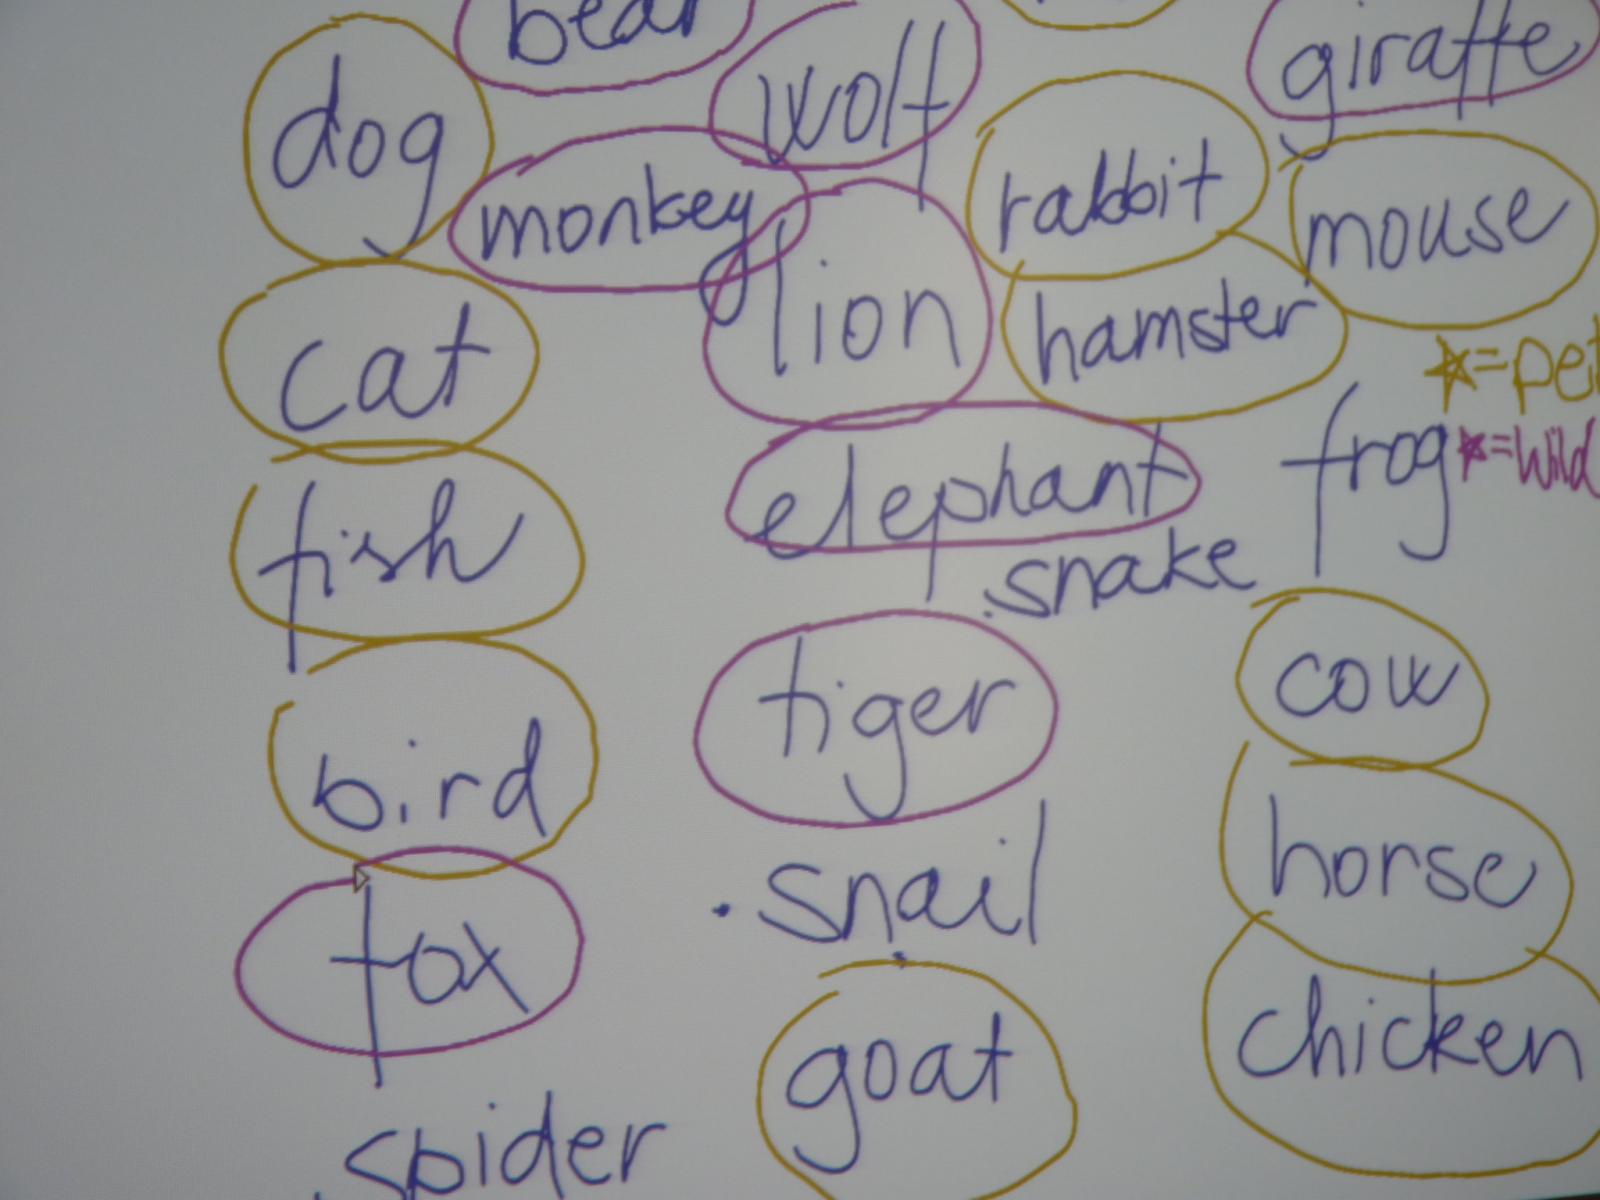 bear
wolf
giraffe
dog
monkey
rabbit
mouse
lion
hamster
cat
☆=pet
elephant
frog
☆=Wild
fish
snake
tiger
cow
bird
horse
snail
fox
goat
chicken
spider